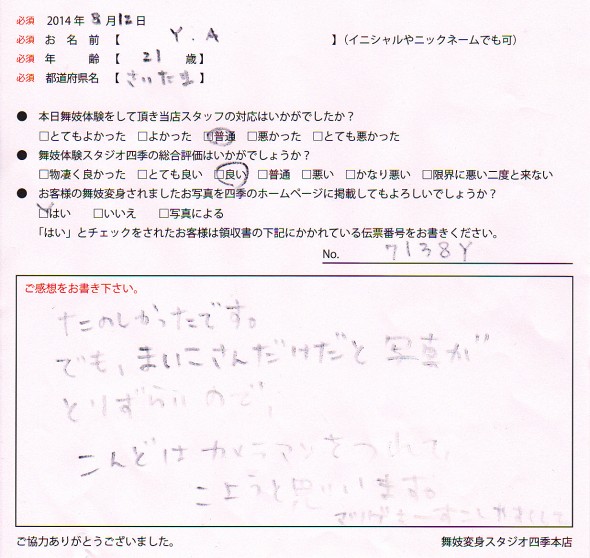 必須 2014年 8月12日
必須 お名前【 Y.A 】(イニシャルやニックネームでも可)
必須 年齢【 21 歳】
必須 都道府県名【 さいたま 】
● 本日舞妓体験をして頂き当店スタッフの対応はいかがでしたか？
□とてもよかった □よかった □普通 □悪かった □とても悪かった
● 舞妓体験スタジオ四季の総合評価はいかがでしょうか？
□物凄く良かった □とても良い □良い □普通 □悪い □かなり悪い □限界に悪い二度と来ない
● お客様の舞妓変身されましたお写真を四季のホームページに掲載してもよろしいでしょうか？
□はい □いいえ □写真による
「はい」とチェックをされたお客様は領収書の下記にかかれている伝票番号をお書きください。
No. 7138Y
ご感想をお書き下さい。
たのしかったです。
でも、まいこさんだけだと写真が
とりずらいので、
こんどはカメラマンをつれて、
こようと思います。
ご協力ありがとうございました。
舞妓変身スタジオ四季本店